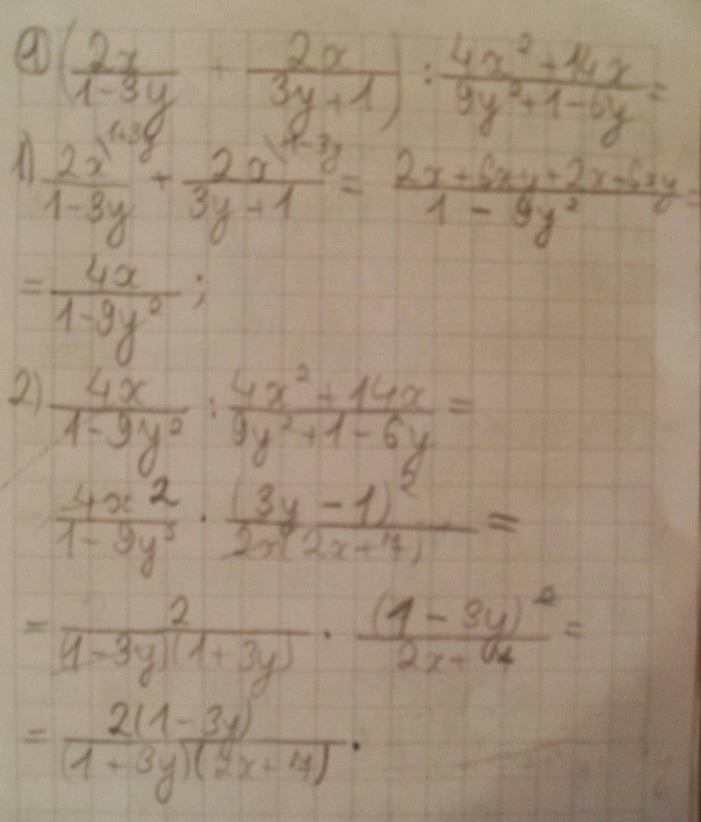 a) (2x/(1-3y) + 2x/(3y+1)) : (4x²+14x)/(9y²+1-6y) =
1) 2x\1+3y/(1-3y) + 2x\1-3y/(3y+1) = (2x+6xy+2x-6xy)/(1-9y²) =
= 4x/(1-9y²);
2) 4x/(1-9y²) : (4x²+14x)/(9y²+1-6y) =
4x 2/(1-9y²) · (3y-1)²/(2x(2x+7)) =
= 2/((1-3y)(1+3y)) · (1-3y)²/(2x+7) =
= 2(1-3y)/((1+3y)(2x+7)).